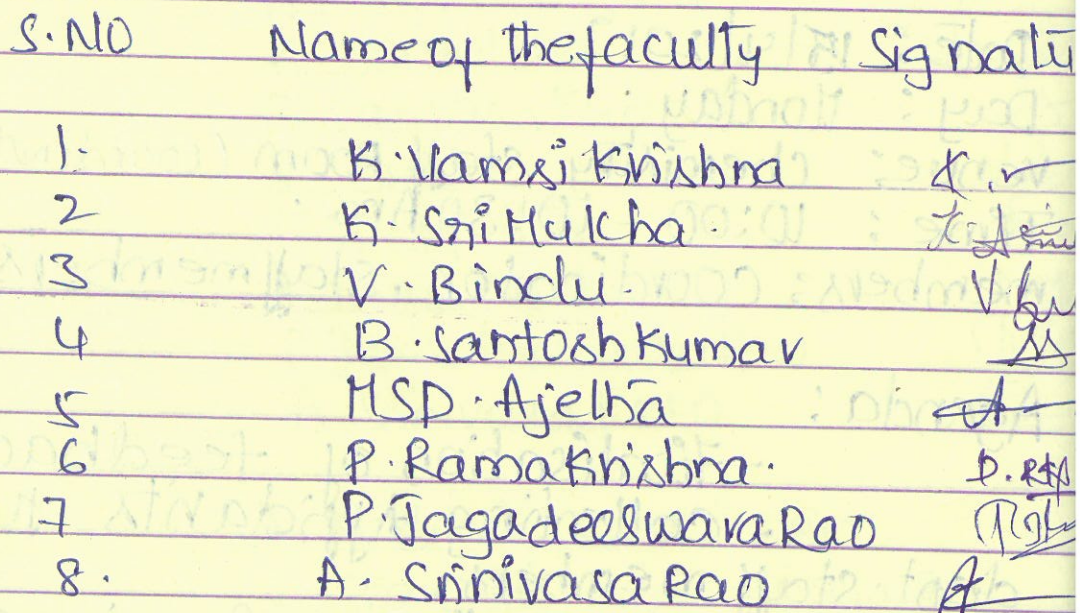 S.NO Name of the faculty Signatu
1. K. Vamsi Krishna K.v
2 K. Sri Mulkha.
3 V. Bindu. V.
4 B. Santosh Kumar
5 MSD. Ajetha A
6 P. Rama Krishna. P. RK
7 P. Jagadeeswara Rao
8. A. Srinivasa Rao